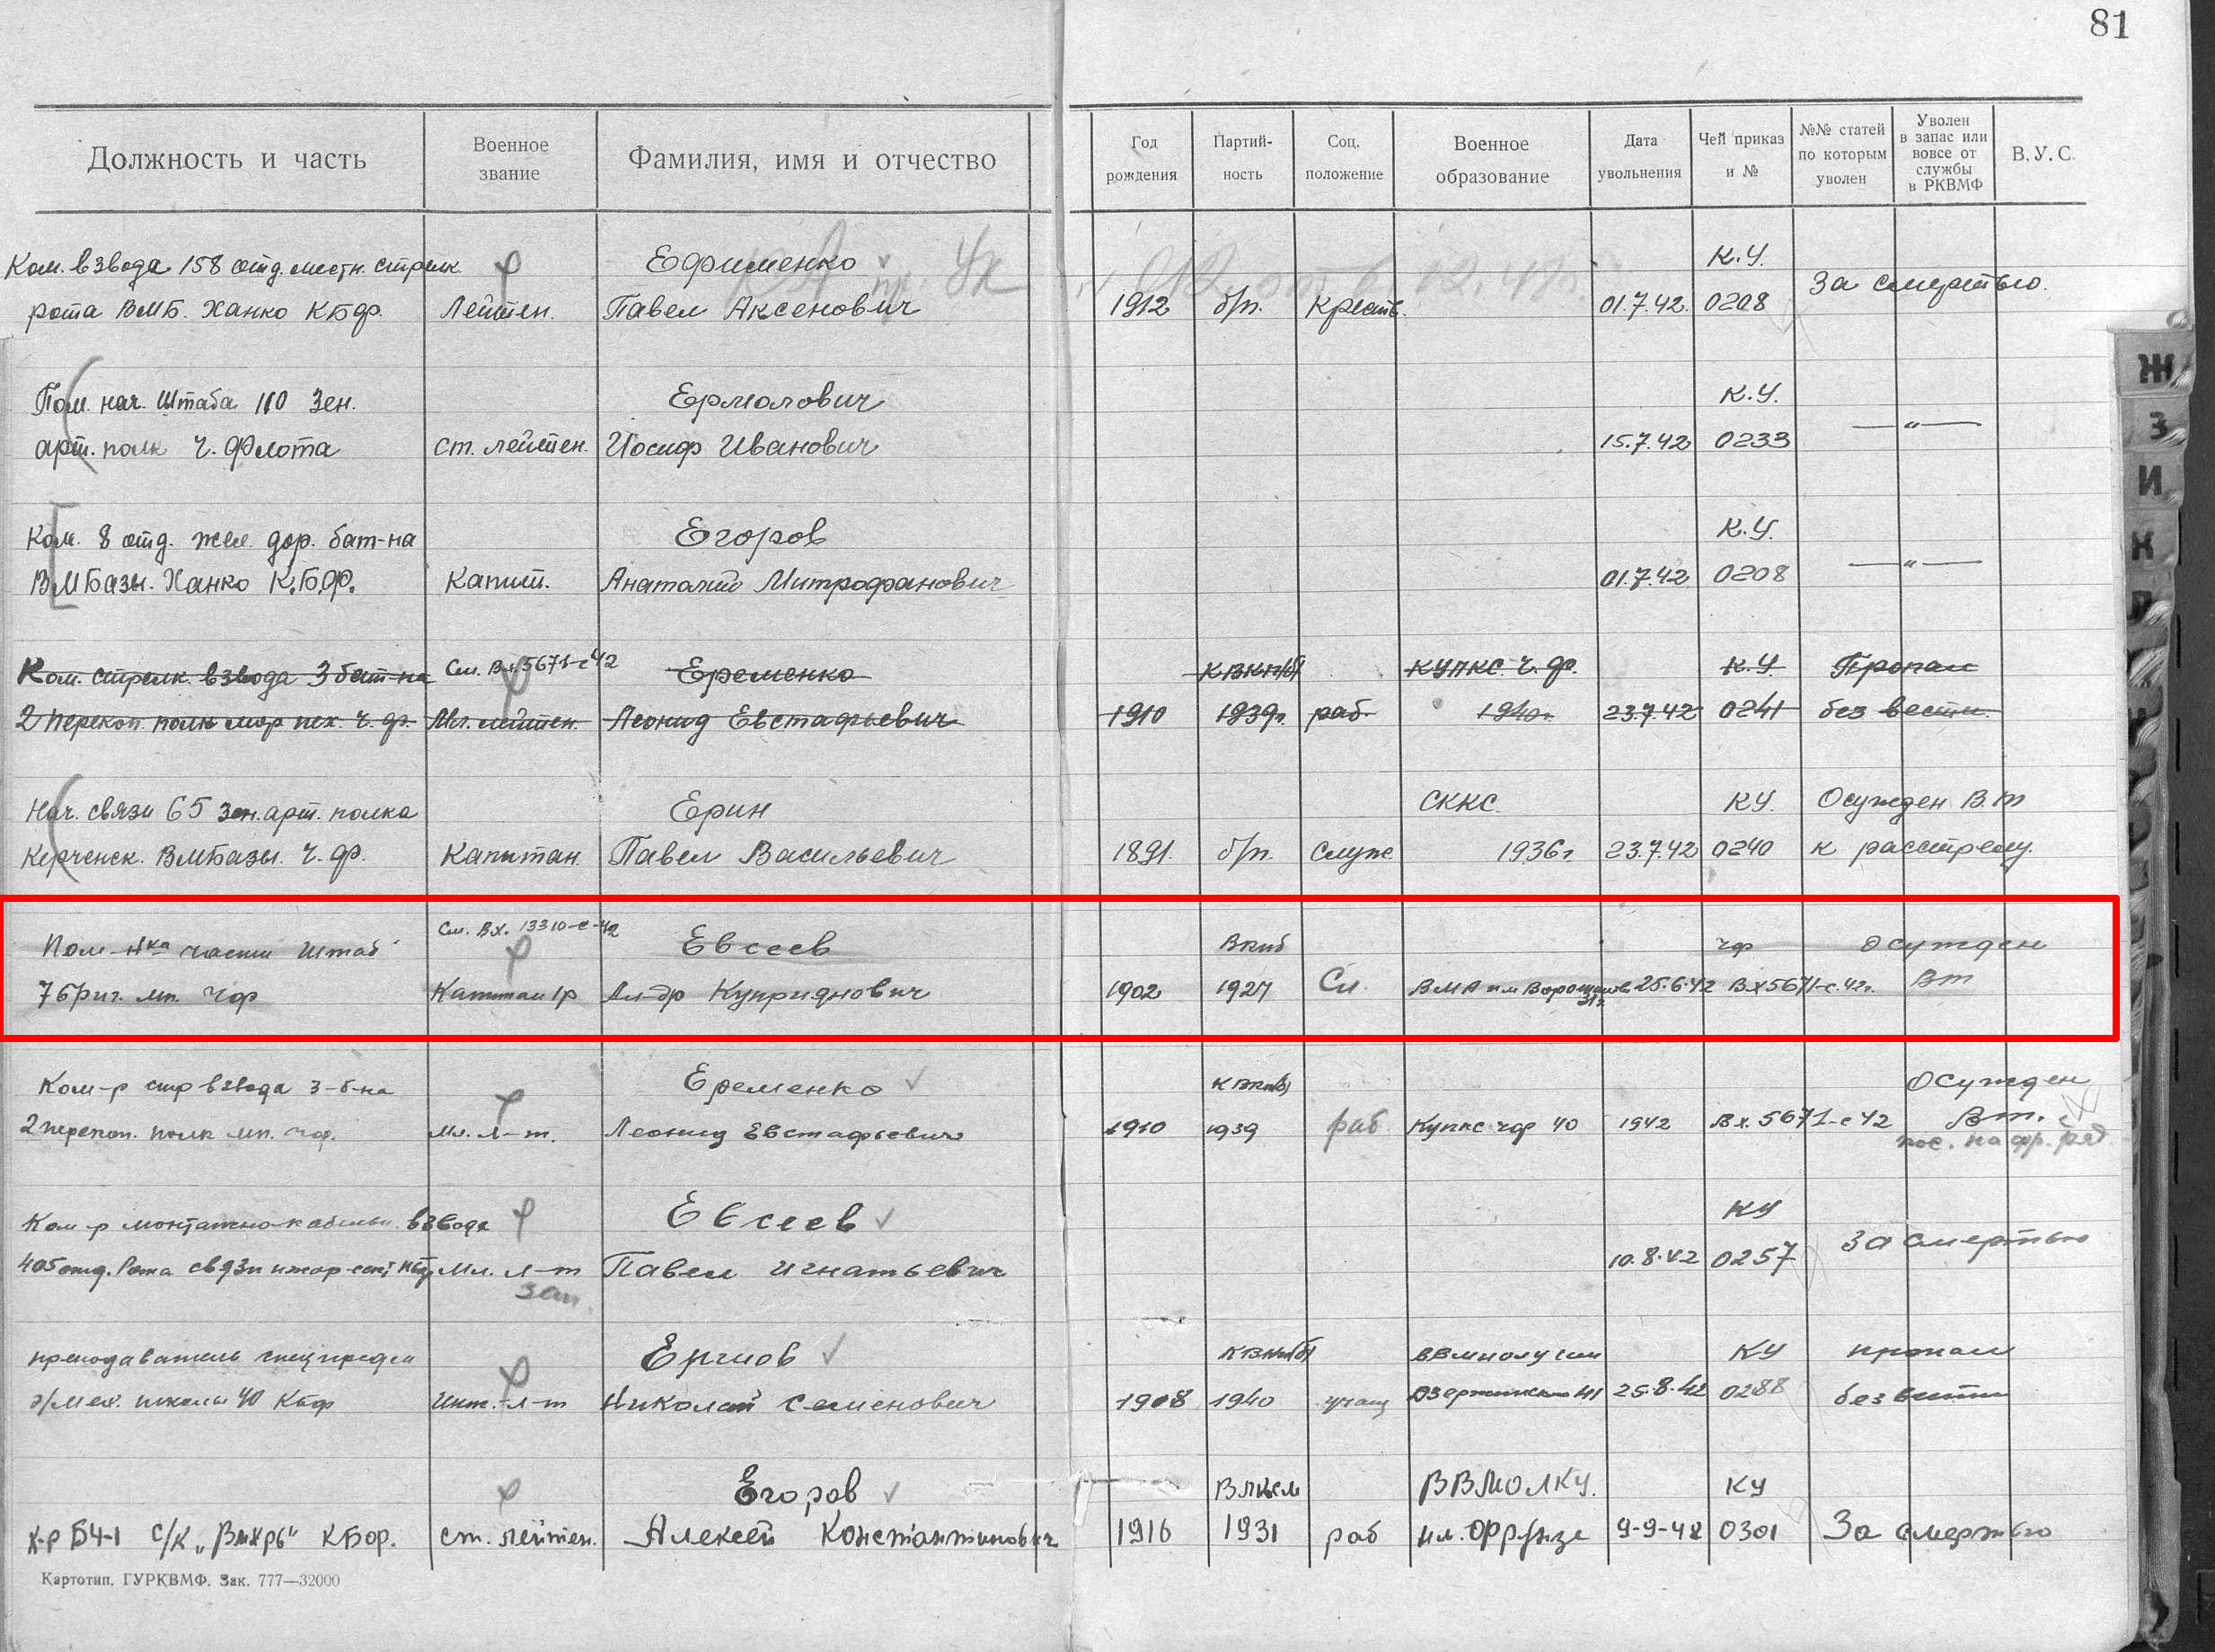 81
Должность и часть
Военное звание
Фамилия, имя и отчество
Год рождения
Партий-ность
Соц. положение
Военное образование
Дата увольнения
Чей приказ и №
№№ статей по которым уволен
Уволен в запас или вовсе от службы в РКВМФ
В.У.С.
Ком. взвода 158 отд. местн. стрелк. Ефименко К.У. За смертью.
рота ВМБ. Ханко КБФ. Лейтен. Павел Аксенович 1912 б/п. Крест. 01.7.42. 0208
Пом. нач. штаба 110 Зен. Ермолович К.У. —"—
арт. полк Ч. Флота ст. лейтен. Иосиф Иванович 15.7.42 0233
Ком. 8 отд. жел. дор. бат-на Егоров К.У. —"—
ВМБазы. Ханко К.Б.Ф. Капит. Анатолий Митрофанович 01.7.42 0208
Ком. стрелк. взвода 3 бат-на См. Вх. 5671-с42 Еременко КВКП(б) КУПКС Ч. Ф. К.У. Пропал
2 перекоп. полк мор пех. Ч. Ф. Мл. лейтен. Леонид Евстафьевич 1910 1939г. раб. 1940г. 23.7.42 0241 без вести.
Нач. связи 65 Зен. арт. полка Ерин СККС. КУ. Осужден В.Т
Керченск. ВМБазы. Ч. Ф. Капитан Павел Васильевич 1891. б/п. Служ. 1936г. 23.7.42 0240 к расстрелу.
Пом-Нка части Штаб См. Вх. 13310-с-42 Евсеев ВКПб ЧФ Осужден
7 бриг. мп. ЧФ Капитан 1р Ал-др Куприянович 1902 1927 Сл. ВМА им Ворошилов 31г. 25.6.42 Вх5671-с.42г. ВТ
Ком-р стр взвода 3-б-на Еременко КВКП(б) Осужден
2 перекоп. полк мп. ЧФ. Мл. л-т. Леонид Евстафьевич 1910 1939 раб Купкс ЧФ 40 1942 Вх. 5671-с 42 Вт.
пос. на фр.
Ком-р монтажно-кабельн. взвода Евсеев КУ За смертью
405 отд. Рота связи Мл. л-т Павел Игнатьевич 10.8.42 0257
зап.
преподаватель Ергиов КВКП(б) КУ пропал
э/мех. школы КБФ Инт. л-т Николай Семенович 1908 1940 учащ Дзержинского 41 25.8.42 0288 без вести
Егоров ВЛКСМ ВВМОЛКУ. КУ
К-р БЧ-1 С/К „Вихрь" КБФ. ст. лейтен. Алексей Константинович 1916 1931 раб им. Фрунзе 9-9-42 0301 За смертью
Картотип. ГУРКВМФ. Зак. 777—32000
Ж
З
И
К
Л